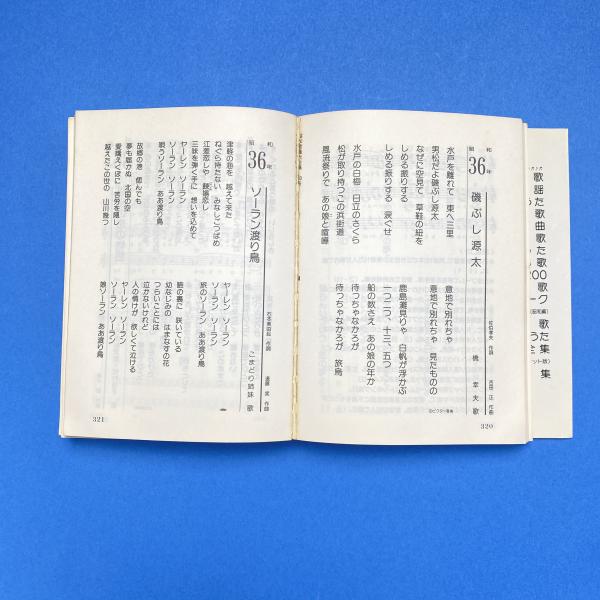 昭和
36年
磯ぶし源太
佐伯孝夫 作詞
吉田 正 作曲
橋 幸夫 歌
水戸を離れて 東へ三里
男松だよ磯ぶし源太
なぜに空見て 草鞋の紐を
しめる振りする
しめる振りする 涙ぐせ
水戸の白梅 日立のさくら
松が取り持つこの浜街道
風流祭りで あの娘と喧嘩
意地で別れちゃ
意地で別れちゃ 見たものの
鹿島灘見りゃ 白帆が浮かぶ
一つ二つ、十三、五つ
船の数さえ あの娘の年か
待っちゃなかろが
待っちゃなかろが 旅烏
320
昭和
36年
ソーラン渡り鳥
石本美由起 作詞
遠藤 実 作曲
こまどり姉妹 歌
津軽の海を 越えて来た
ねぐら持たない みなしごつばめ
江差恋しや 鰊場恋し
三味を弾く手に 想いを込めて
ヤーレン ソーラン
ソーラン ソーラン
唄うソーラン ああ渡り鳥
故郷の港 偲んでも
夢も届かぬ 北国の空
愛嬌えくぼに 苦労を隠し
越えたこの世の 山川幾つ
ヤーレン ソーラン
ソーラン ソーラン
旅のソーラン ああ渡り鳥
瞼の裏に 咲いている
幼なじみの はまなすの花
つらいことには 泣かないけれど
人の情けが 欲しくて泣ける
ヤーレン ソーラン
ソーラン ソーラン
娘ソーラン ああ渡り鳥
321